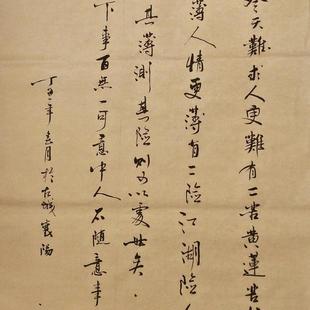 天難求人更難有二苦黄蓮苦
薄人情更薄有二險江湖險人
其薄測其險則可以處世矣
下事百無一可意中人不随意事
丁丑年 月於古城襄陽